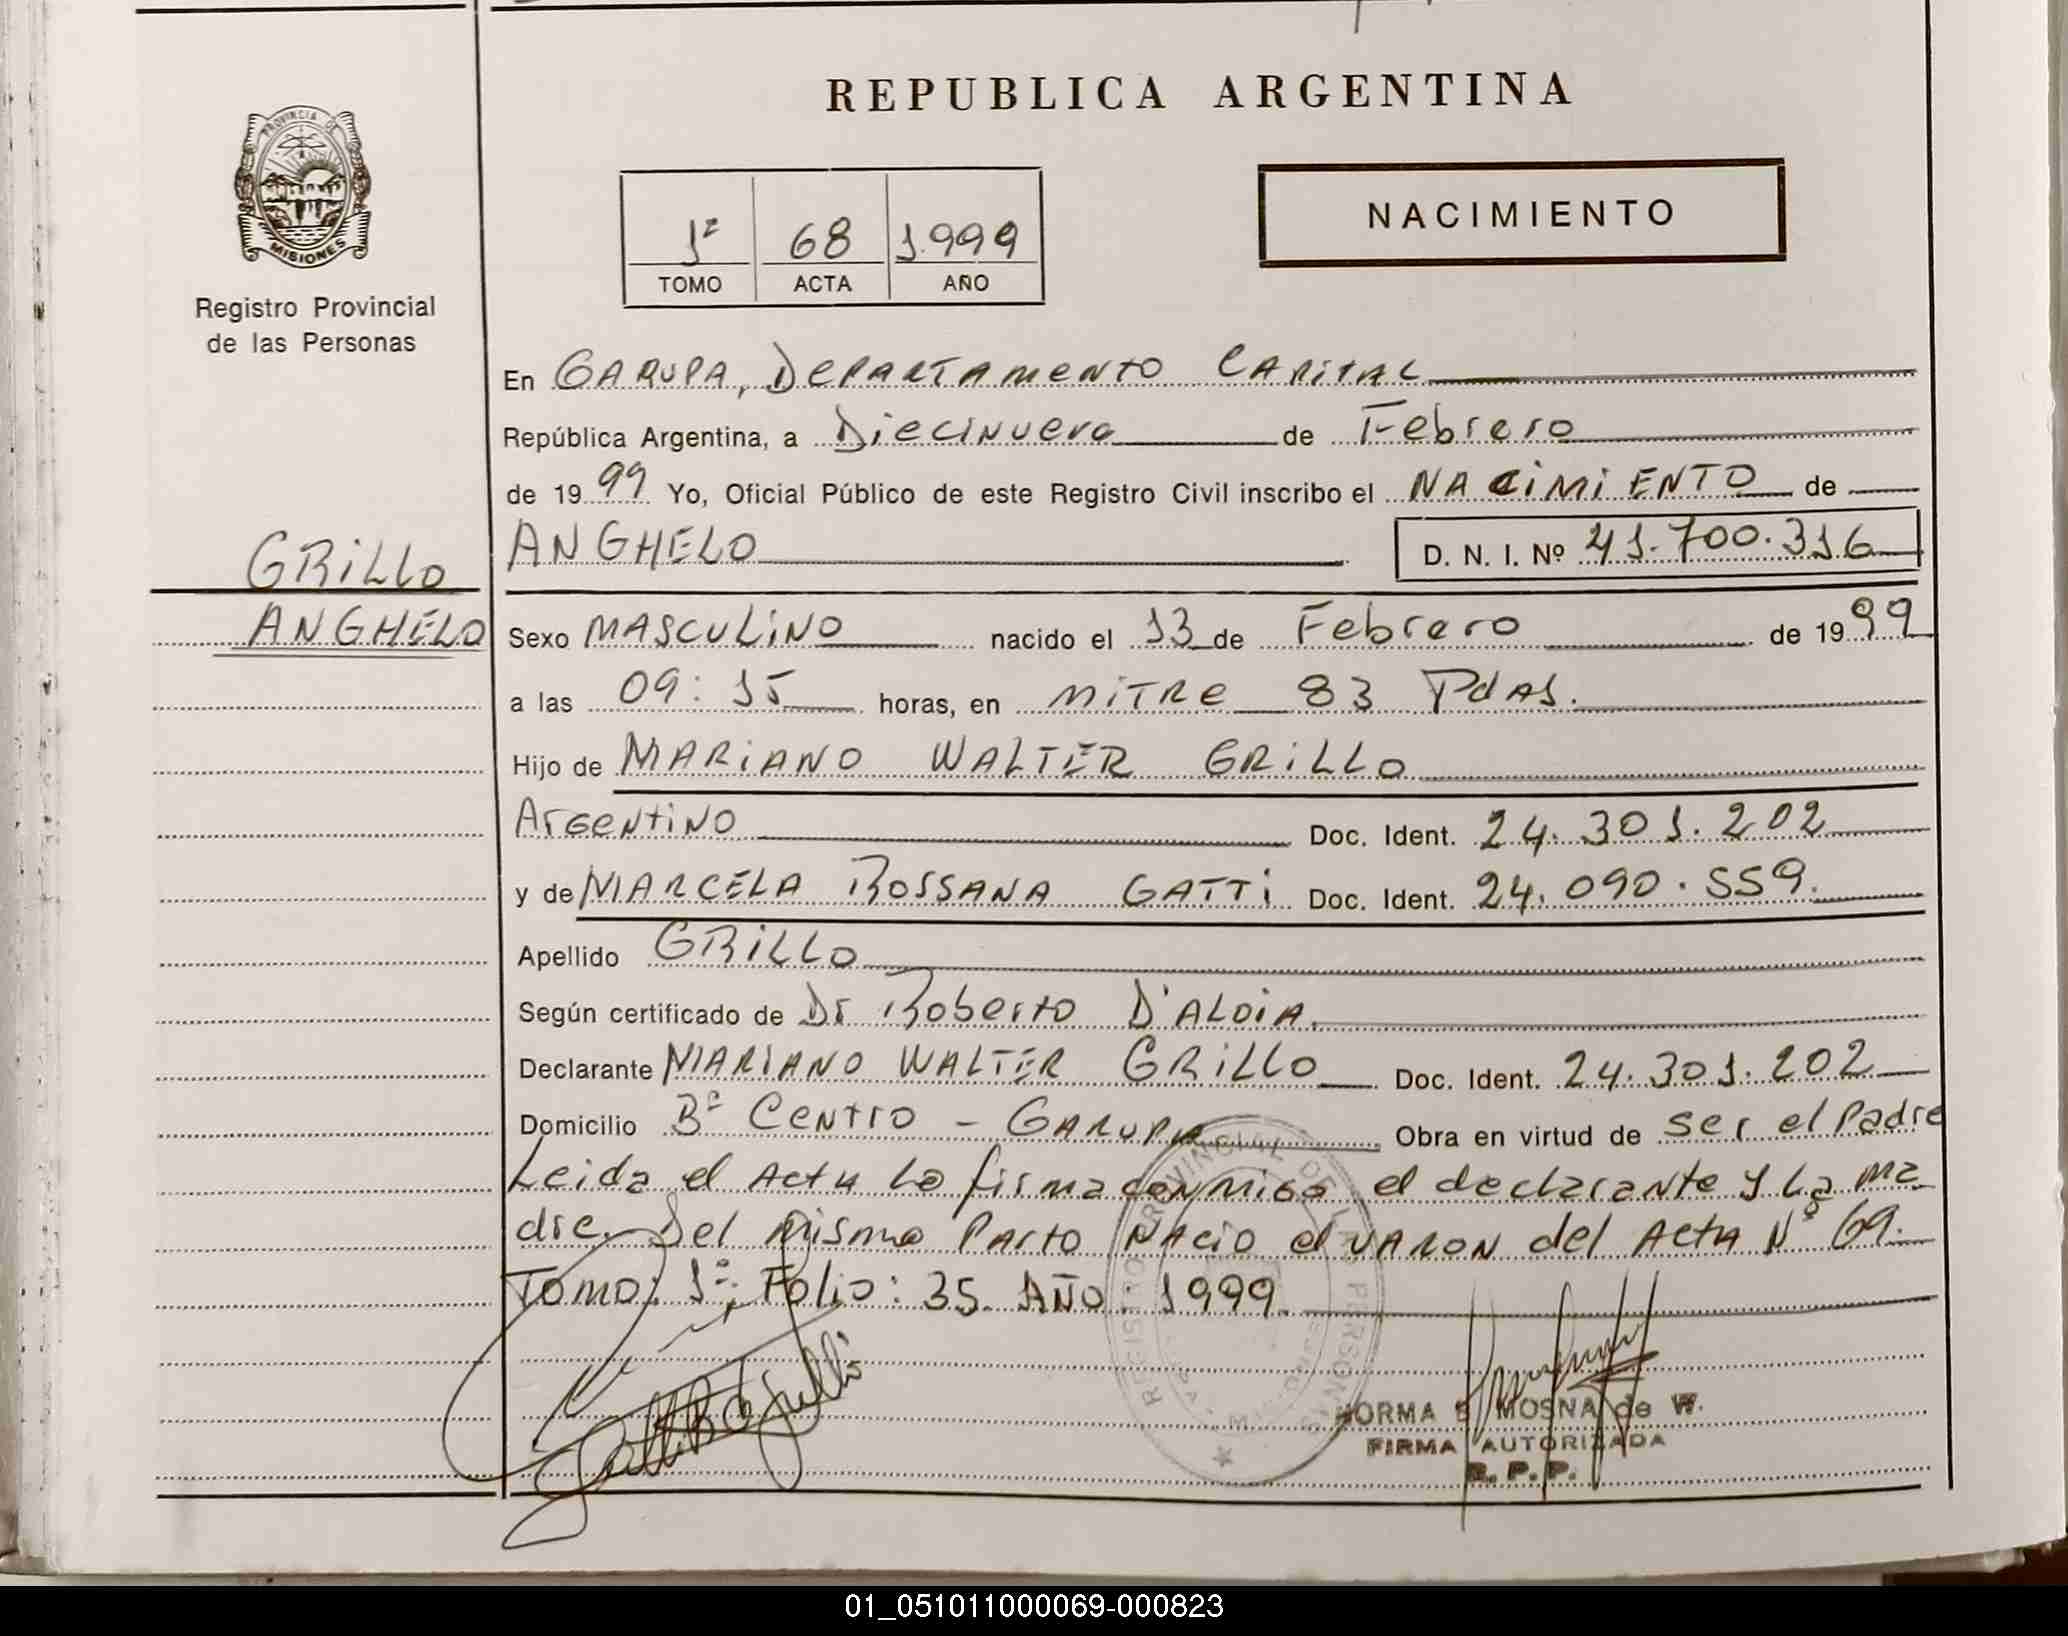 REPUBLICA ARGENTINA
PROVINCIA DE
MISIONES
Registro Provincial
de las Personas
1º 68 1.999
TOMO ACTA AÑO
NACIMIENTO
En GARUPA, DEPARTAMENTO CAPITAL
República Argentina, a Diecinueve de Febrero
de 1999 Yo, Oficial Público de este Registro Civil inscribo el NACIMIENTO de
GRILLO
ANGHELO
ANGHELO D. N. I. Nº 41.700.316
Sexo MASCULINO nacido el 13 de Febrero de 1999
a las 09:15 horas, en MITRE 83 Pdas.
Hijo de MARIANO WALTER GRILLO
Argentino Doc. Ident. 24.301.202
y de MARCELA ROSSANA GATTI Doc. Ident. 24.090.559.
Apellido GRILLO
Según certificado de Dr Roberto D'ALOIA.
Declarante MARIANO WALTER GRILLO Doc. Ident. 24.301.202
Domicilio Bº CENTRO - GARUPA Obra en virtud de ser el Padre
Leida el Acta la firma conmigo el declarante y La ma
dre. Del mismo Parto Nacio el VARON del Acta Nº 69.
Tomo: 1º. Folio: 35. AÑO: 1999.
REGISTRO PROVINCIAL DE LAS PERSONAS
NORMA MOSNA de W.
FIRMA AUTORIZADA
R. P. P.
01_051011000069-000823